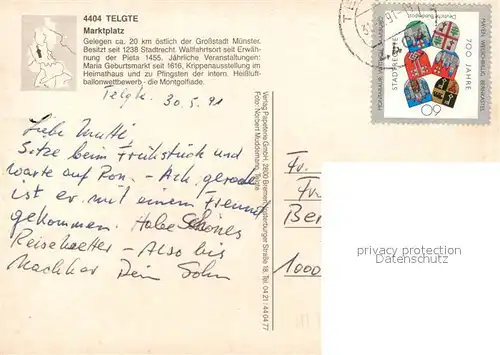 4404 TELGTE
Marktplatz
Gelegen ca. 20 km östlich der Großstadt Münster.
Besitzt seit 1238 Stadtrecht. Wallfahrtsort seit Erwäh-
nung der Pieta 1455. Jährliche Veranstaltungen:
Maria Geburtsmarkt seit 1616, Krippenausstellung im
Heimathaus und zu Pfingsten der intern. Heißluft-
ballonwettbewerb - die Montgolfiade.
Telgte 30.5.91
Liebe Mutti
Sitze beim Frühstück und
warte auf Ron. - Ach, gerade
ist er mit einem Freund
gekommen. Habe Schönes
Reisewetter - Also bis
Nachher Dein Sohn
Verlag: Papeterie GmbH, 2800 Bremen
Foto: Norbert Muddemann, Telgte
18, Tel. 04 21/44 04 77
Deutsche Bundespost
700 JAHRE
STADTRECHTE
60
Fr.
Fr
Ber
1000
privacy protection
Datenschutz